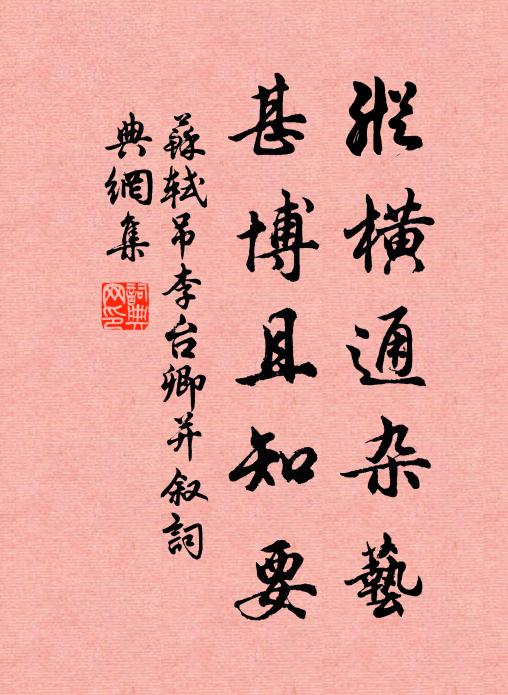 縱橫通杂藝
甚博且知要
蘇轼吊李台卿并叙詞
典網集
詞典网印